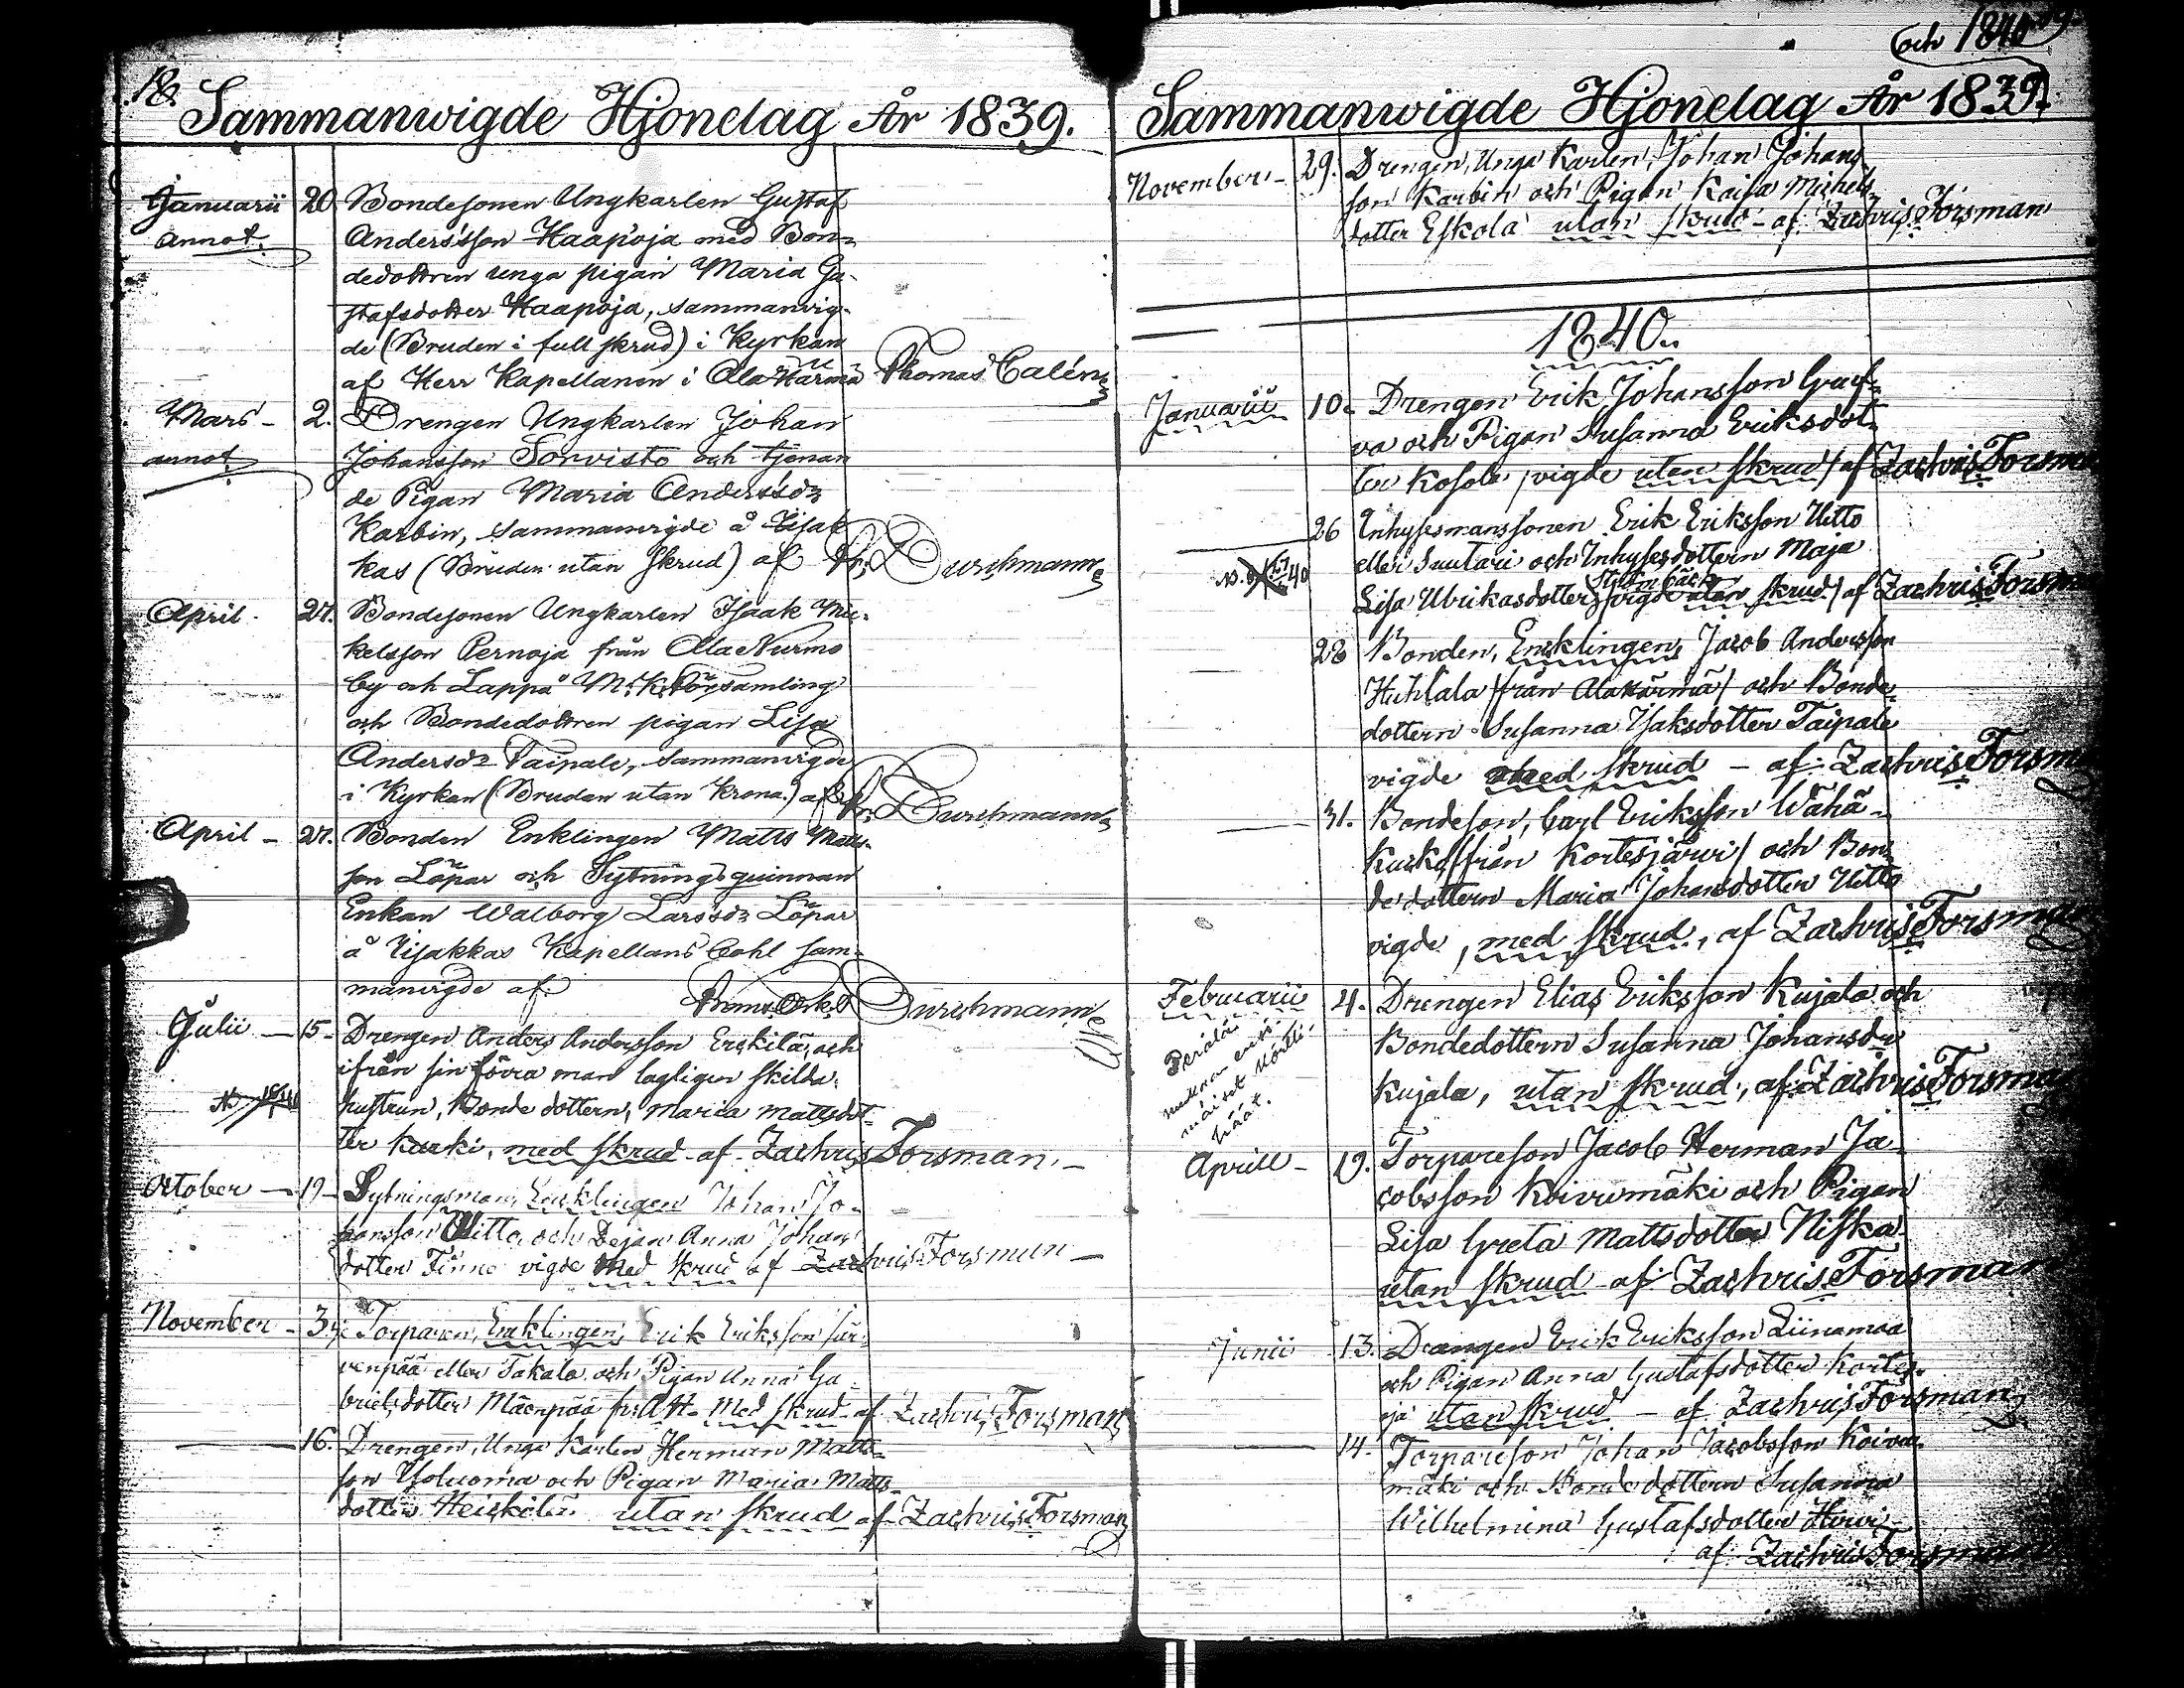 18.
Sammanwigde Hjonelag År 1839.
Januarii 20 Bondesonen Ungkarlen Gustaf
annot. Andersson Haapoja med Bon-
dedottren unga pigan Maria Gu-
stafsdotter Haapoja, sammanvig-
de (Bruden i full skrud) i Kyrkan
af Herr Kapellanen i Ala Härmä Thomas Calén
Mars - 2. Drengen Ungkarlen Johan
annot. Johansson Sorvisto och tjenan
de Pigan Maria Andersdr
Karbin, sammanvigde å Yisak
kas (Bruden utan skrud) af Durchman
April - 27. Bondesonen Ungkarlen Isaak Mic-
kelsson Pernaja från Ala Nurmo
by och Lappo M.K. Församling
och Bondedottren pigan Lisa
Andersdr Taipale, sammanvigde
i Kyrkan (Bruden utan Krona.) af Durchman
April - 27. Bonden Enklingen Matts Matts-
son Löpar och Sytningsquinnan
Enkan Walborg Larsdr Löpar
å Yisakkas Kapellans Bohl sam-
manvigde af Durchman
Julii - 15 - Drengen Anders Andersson Erckilä, och
ifrån sin förra man lagligen skilda
hustrun, Bonde dottern, Maria Mattsdot-
ter Karki, med skrud - af - Zachris Forsman. -
October - 19 - Sytningsman, Enklingen Johan Jo-
hansson Uitto och Dejan Anna Johans
dotter Finne vigde Med skrud af Zachris Forsman -
November - 3. Torparen, Enklingen, Erik Eriksson Jär-
venpää eller Takala och Pigan Anna Ga-
brielsdotter Mäenpää fr. AH. Med skrud - af Zachris Forsman
- 16. Drengen, Unga Karlen Herman Matts-
son Yloluoma och Pigan Maria Matts-
dotter Heickilä utan skrud af Zachris Forsman
och 1840
Sammanwigde Hjonelag År 1839.
November - 29. Drengen, Unga Karlen, Johan Johans-
son Karbin och Pigan Kaisa Michels-
dotter Eskola utan skrud - af Zachris Forsman
1840.
Januarii 10. Drengen Erik Johansson Graf-
va och Pigan Susanna Eriksdot-
ter Kosola / vigde utan skrud / af Zachris Forsman
26 Inhysesmanssonen Erik Eriksson Uitto
eller Suutari och Inhysesdottern Maja
Lisa Ulrikasdotter / vigde utan skrud / af Zachris Forsman
28 Bonden, Enklingen, Jacob Andersson
Huhtala / från Alahärmä / och Bonde-
dottern Susanna Isaksdotter Taipale
vigde med skrud - af Zachris Forsman
31. Bondeson, Carl Eriksson Wähä-
Kuckä / från Kortesjärwi / och Bon-
dedottern Maria Johansdotter Uitto
vigde, med skrud, af Zachris Forsman
Februarii 4. Drengen Elias Eriksson Kujala och
Bondedottern Susanna Johansdr
Kujala, utan skrud, af Zachris Forsman
Aprill - 19. Torpareson Jacob Herman Ja-
cobsson Koivumäki och Pigan
Lisa Greta Mattsdotter Niska
utan skrud - af Zachris Forsman
Junii 13. Drengen Erik Eriksson Liinamaa
och Pigan Anna Gustafsdotter Kortes-
oja utan skrud - af Zachris Forsman
- 14. Torpareson Johan Jacobsson Koivu-
mäki och Bonde dottern Susanna
Wilhelmina Gustafsdotter Hirvi -
af Zachris Forsman